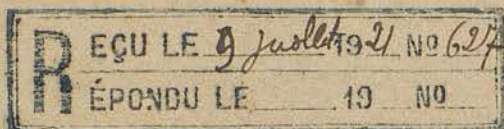 REÇU LE 9 juillet 1921 Nº 627
RÉPONDU LE 19 Nº